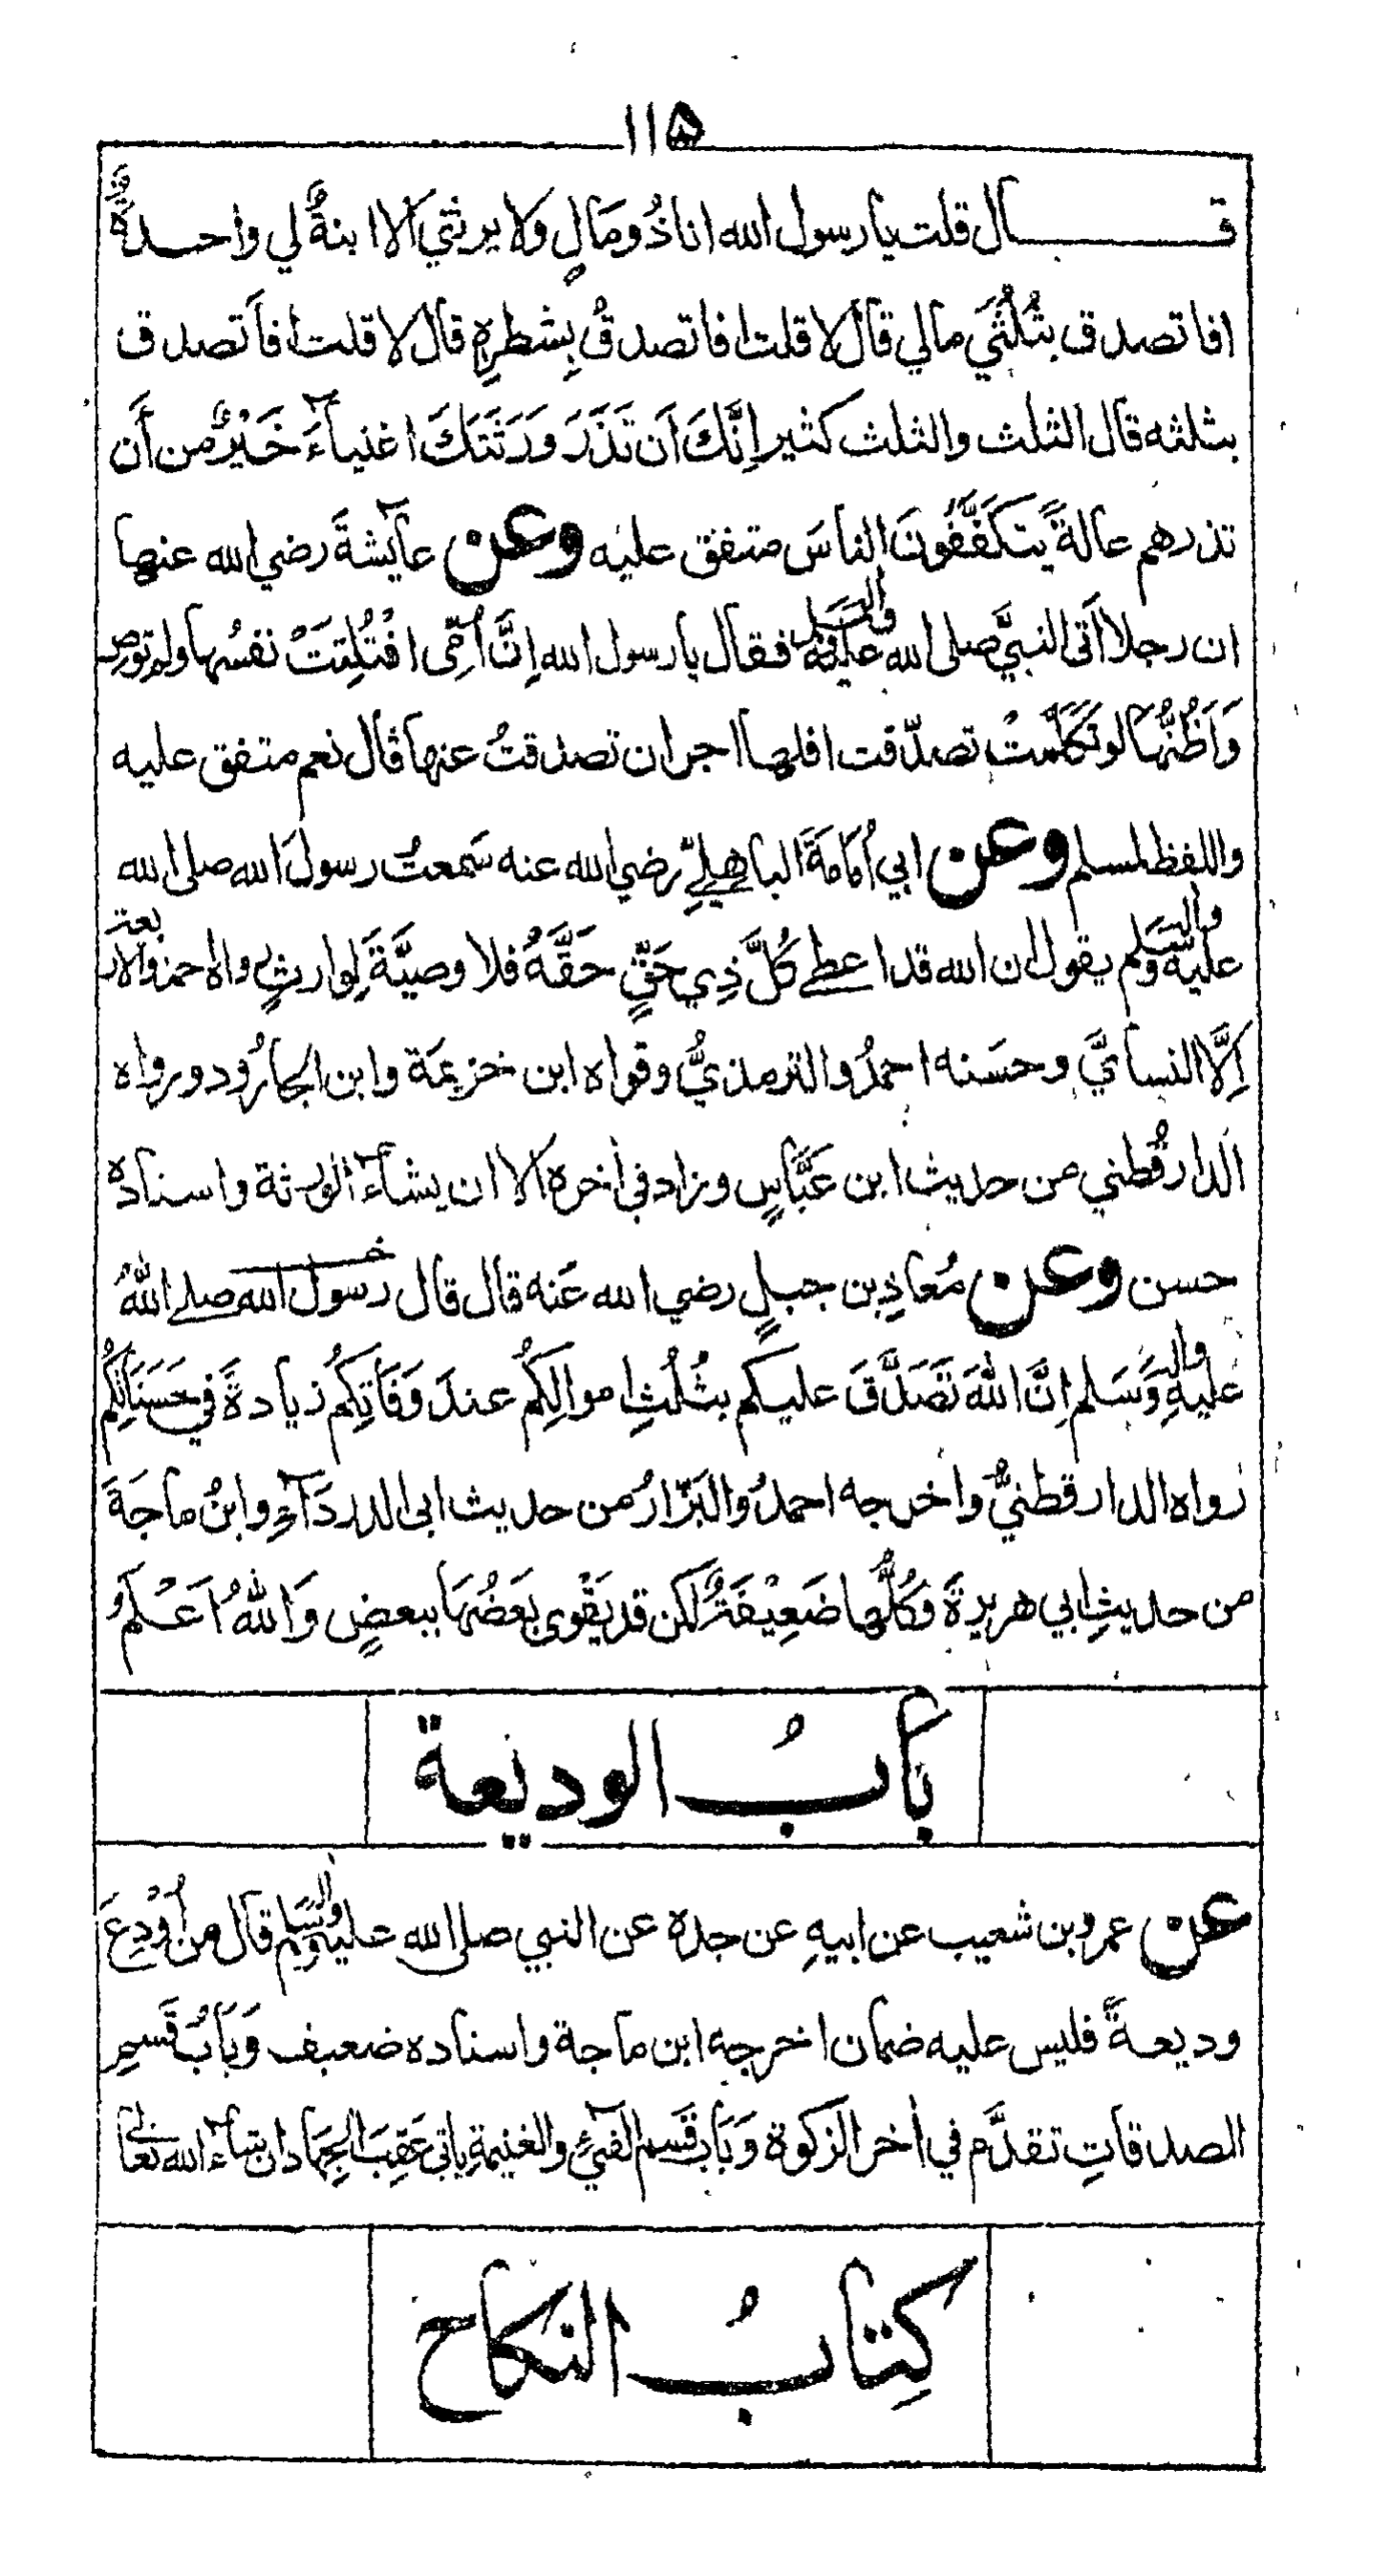 ١١۵
قال قلت يا رسول الله انا ذُو مَالٍ ولا يرثني الا ابنةٌ لي واحدةٌ
افاتصدق بثُلُثَي مالي قال لا قلت افاتصدقُ بِشطرِهِ قال لا قلت افاَتصدق
بثلثه قال الثلث والثلث كثير اِنَّكَ اَن تَذَرَ وَرَثَتَكَ اغنياءَ خَيْرٌ من أَن
تذرهم عالةً يتكَفَّفُونَ الناسَ متفق عليه وعن عايشةَ رضي الله عنها
ان رجلا اَتى النبيَّ صلى الله عليه واله وسلم فقال يا رسول الله اِنَّ اُمِّى افْتُلِتَتْ نفسُها ولم توص
وَاَظُنُّهَا لو تَكَلَّمتْ تصدّقت افلها اجر ان تصدقتُ عنها قال نعم متفق عليه
واللفظ لمسلم وعن ابي اُمَامَةَ الباهِليِّ رضي الله عنه سَمعتُ رسولَ الله صلى الله
عليه واله وسلم يقول ان الله قد اعطى كُلَّ ذِي حَقٍّ حَقَّهُ فلا وصيَّةَ لِوارِثٍ رواه احمد والاربعة
اِلَّا النسائيَّ وحسَنه احمدُ والترمذيُّ وقواه ابن خزيمَة وابن الجارُود ورواه
الدارقُطني من حديث ابن عَبَّاسٍ وزاد في أخره الا ان يشاءَ الورثة واسناده
حسن وعن مُعاذِ بن جبلٍ رضي الله عَنه قال قال رسول الله صلى اللهُ
عَليهِ واله وَسَلم اِنَّ اللهَ تَصَدَّقَ عليكم بثُلُثِ اموالِكُم عندَ وَفَاتِكُم زيادةً في حَسَنَاتِكُم
رواه الدارقطنيُّ واخرجه احمدُ والبَزّارُ من حديث ابى الدردَآءِ وابنُ ماجَةَ
من حديثِ ابي هريرةَ وَكُلُّها ضَعِيْفَةٌ لكن قد يَقْوى بَعَضُهَا ببعضٍ وَاللهُ اَعْلَمُ
بابُ الوديعة
عن عمرو بن شعيب عن ابيهِ عن جده عن النبي صلى الله عليه واله وسلم قال من اُوْدِعَ
وديعةً فليس عليه ضمان اخرجه ابن ماجة واسناده ضعيف وَبَابُ قَسمِ
الصدقاتِ تقدَّم في أخر الزكوة وَبَاب قَسم الفَيءِ والغنيمةِ ياتى عَقِبَ الجِهَاد ان شاء الله تعالى
كِتابُ النكاح